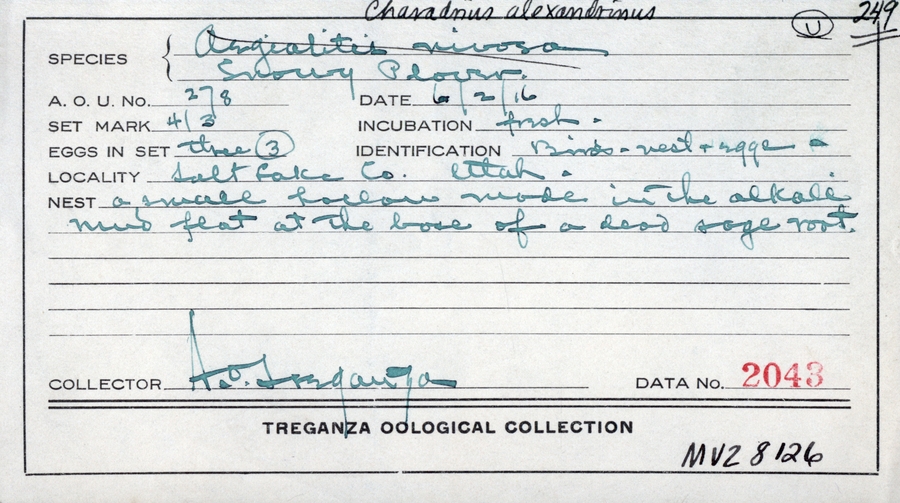 Charadrius alexandrinus
U 249
SPECIES Aegialitis nivosa
Snowy Plover.
A. O. U. No. 278 DATE 6/2/16
SET MARK 4/3 INCUBATION fresh.
EGGS IN SET three (3) IDENTIFICATION Birds - nest + eggs
LOCALITY Salt Lake Co. Utah.
NEST a small hollow made in the alkali
mud flat at the base of a dead sage root.
COLLECTOR A.O. Treganza DATA No. 2043
TREGANZA OOLOGICAL COLLECTION
MVZ 8126